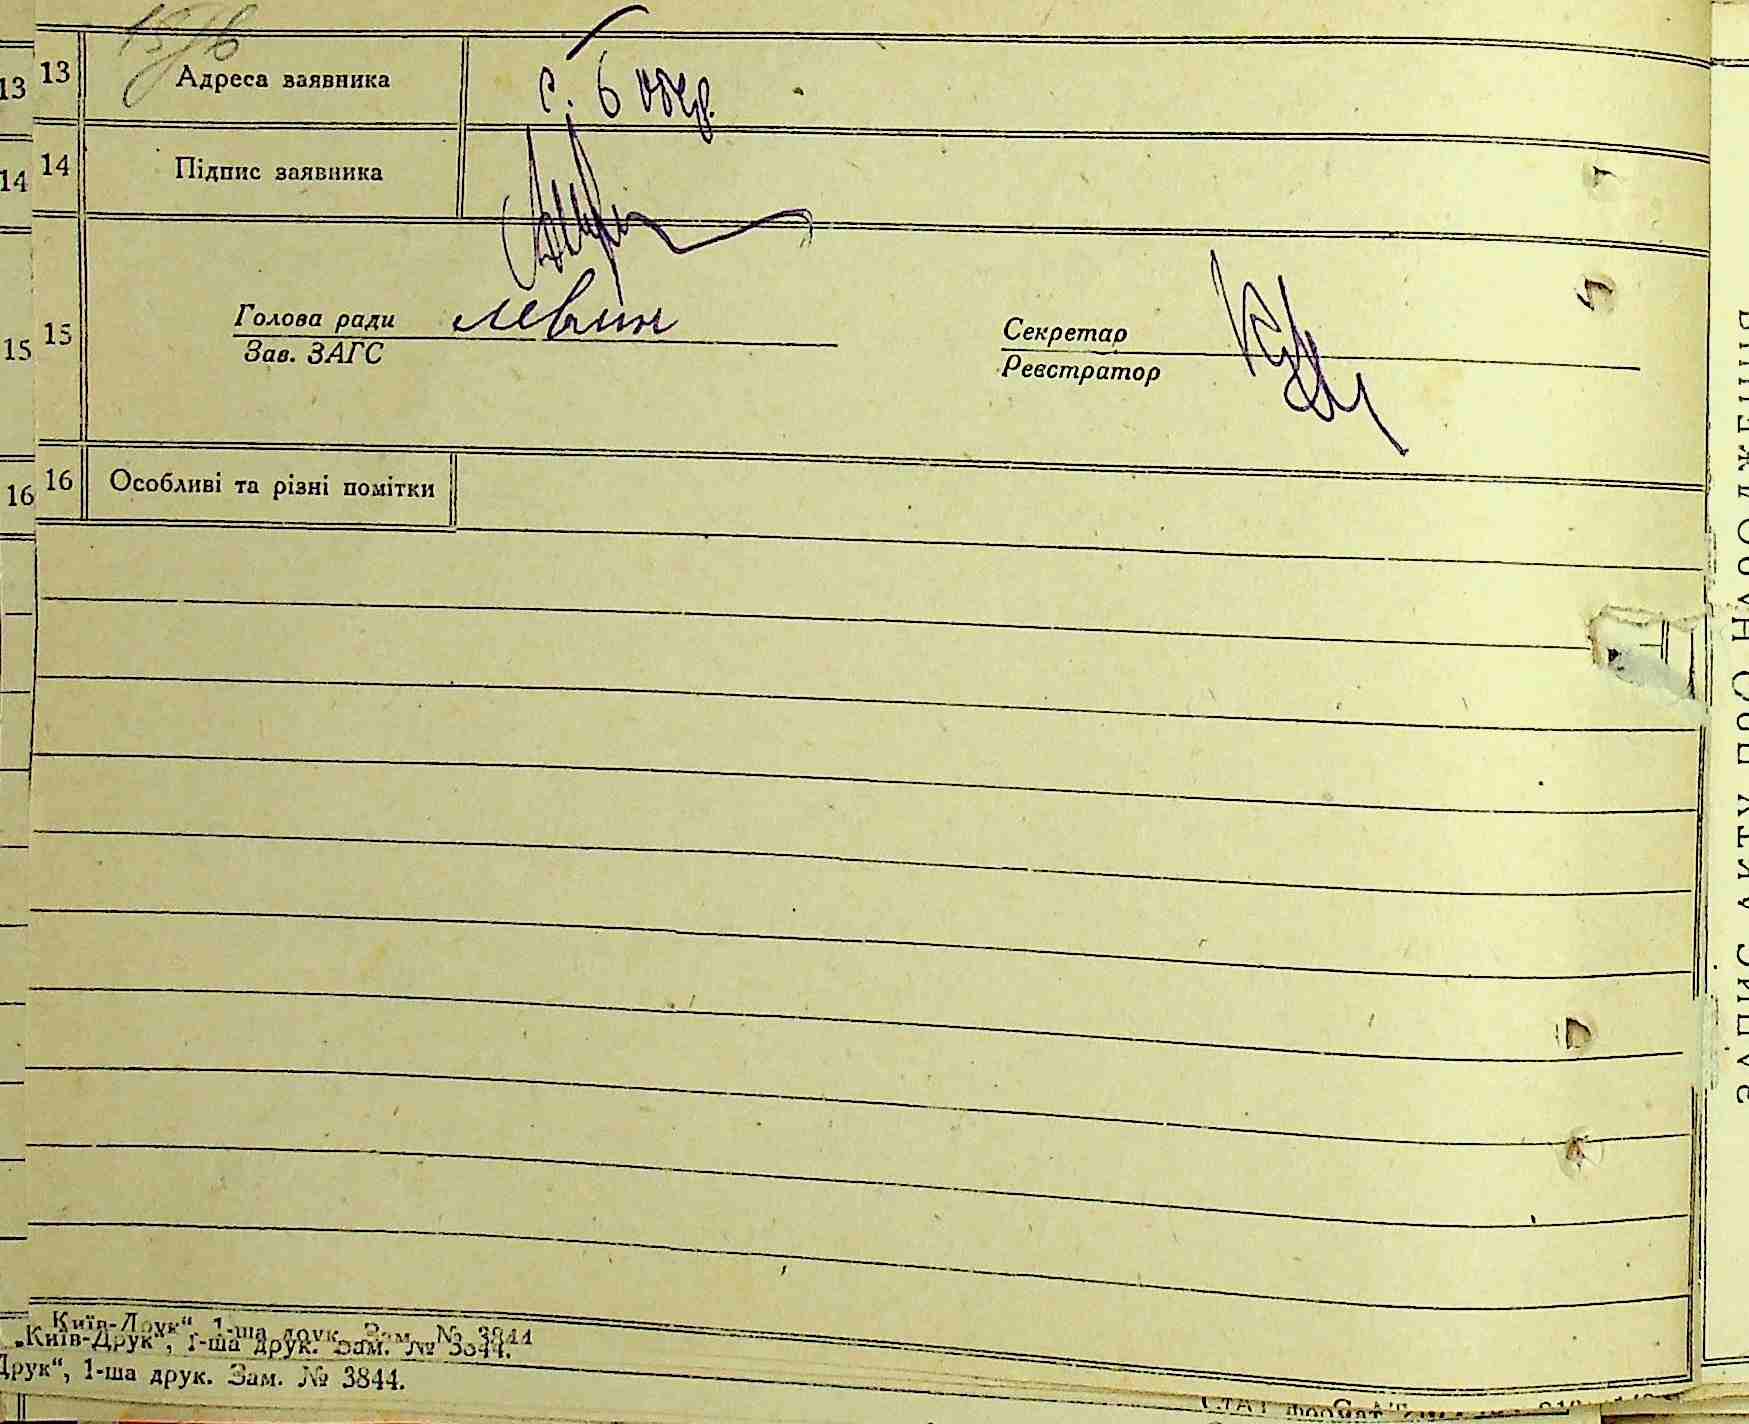 13 13 Адреса заявника с.
14 14 Підпис заявника
Голова ради Левин Секретар
15 15
Зав. ЗАГС Реєстратор
16 16 Особливі та різні помітки
Київ-Друк“, 1-ша друк. Зам. № 3844
„Київ-Друк“, 1-ша друк. Зам. № 3844.
Друк“, 1-ша друк. Зам. № 3844.